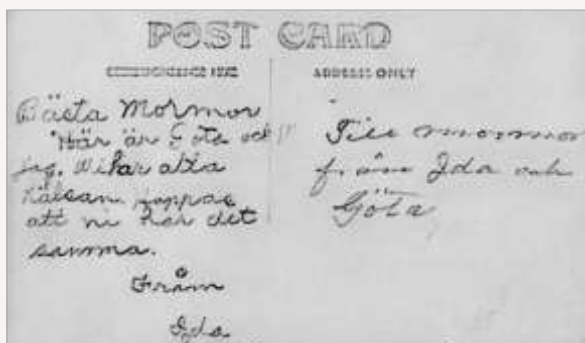 POST CARD
CORRESPONDENCE HERE
ADDRESS ONLY
Bästa Mormor
Här är Göta och
jag. Vi har alla
hälsan hoppas
att ni har det
samma.
Från
Ida
Till mormor
från Ida och
Göta